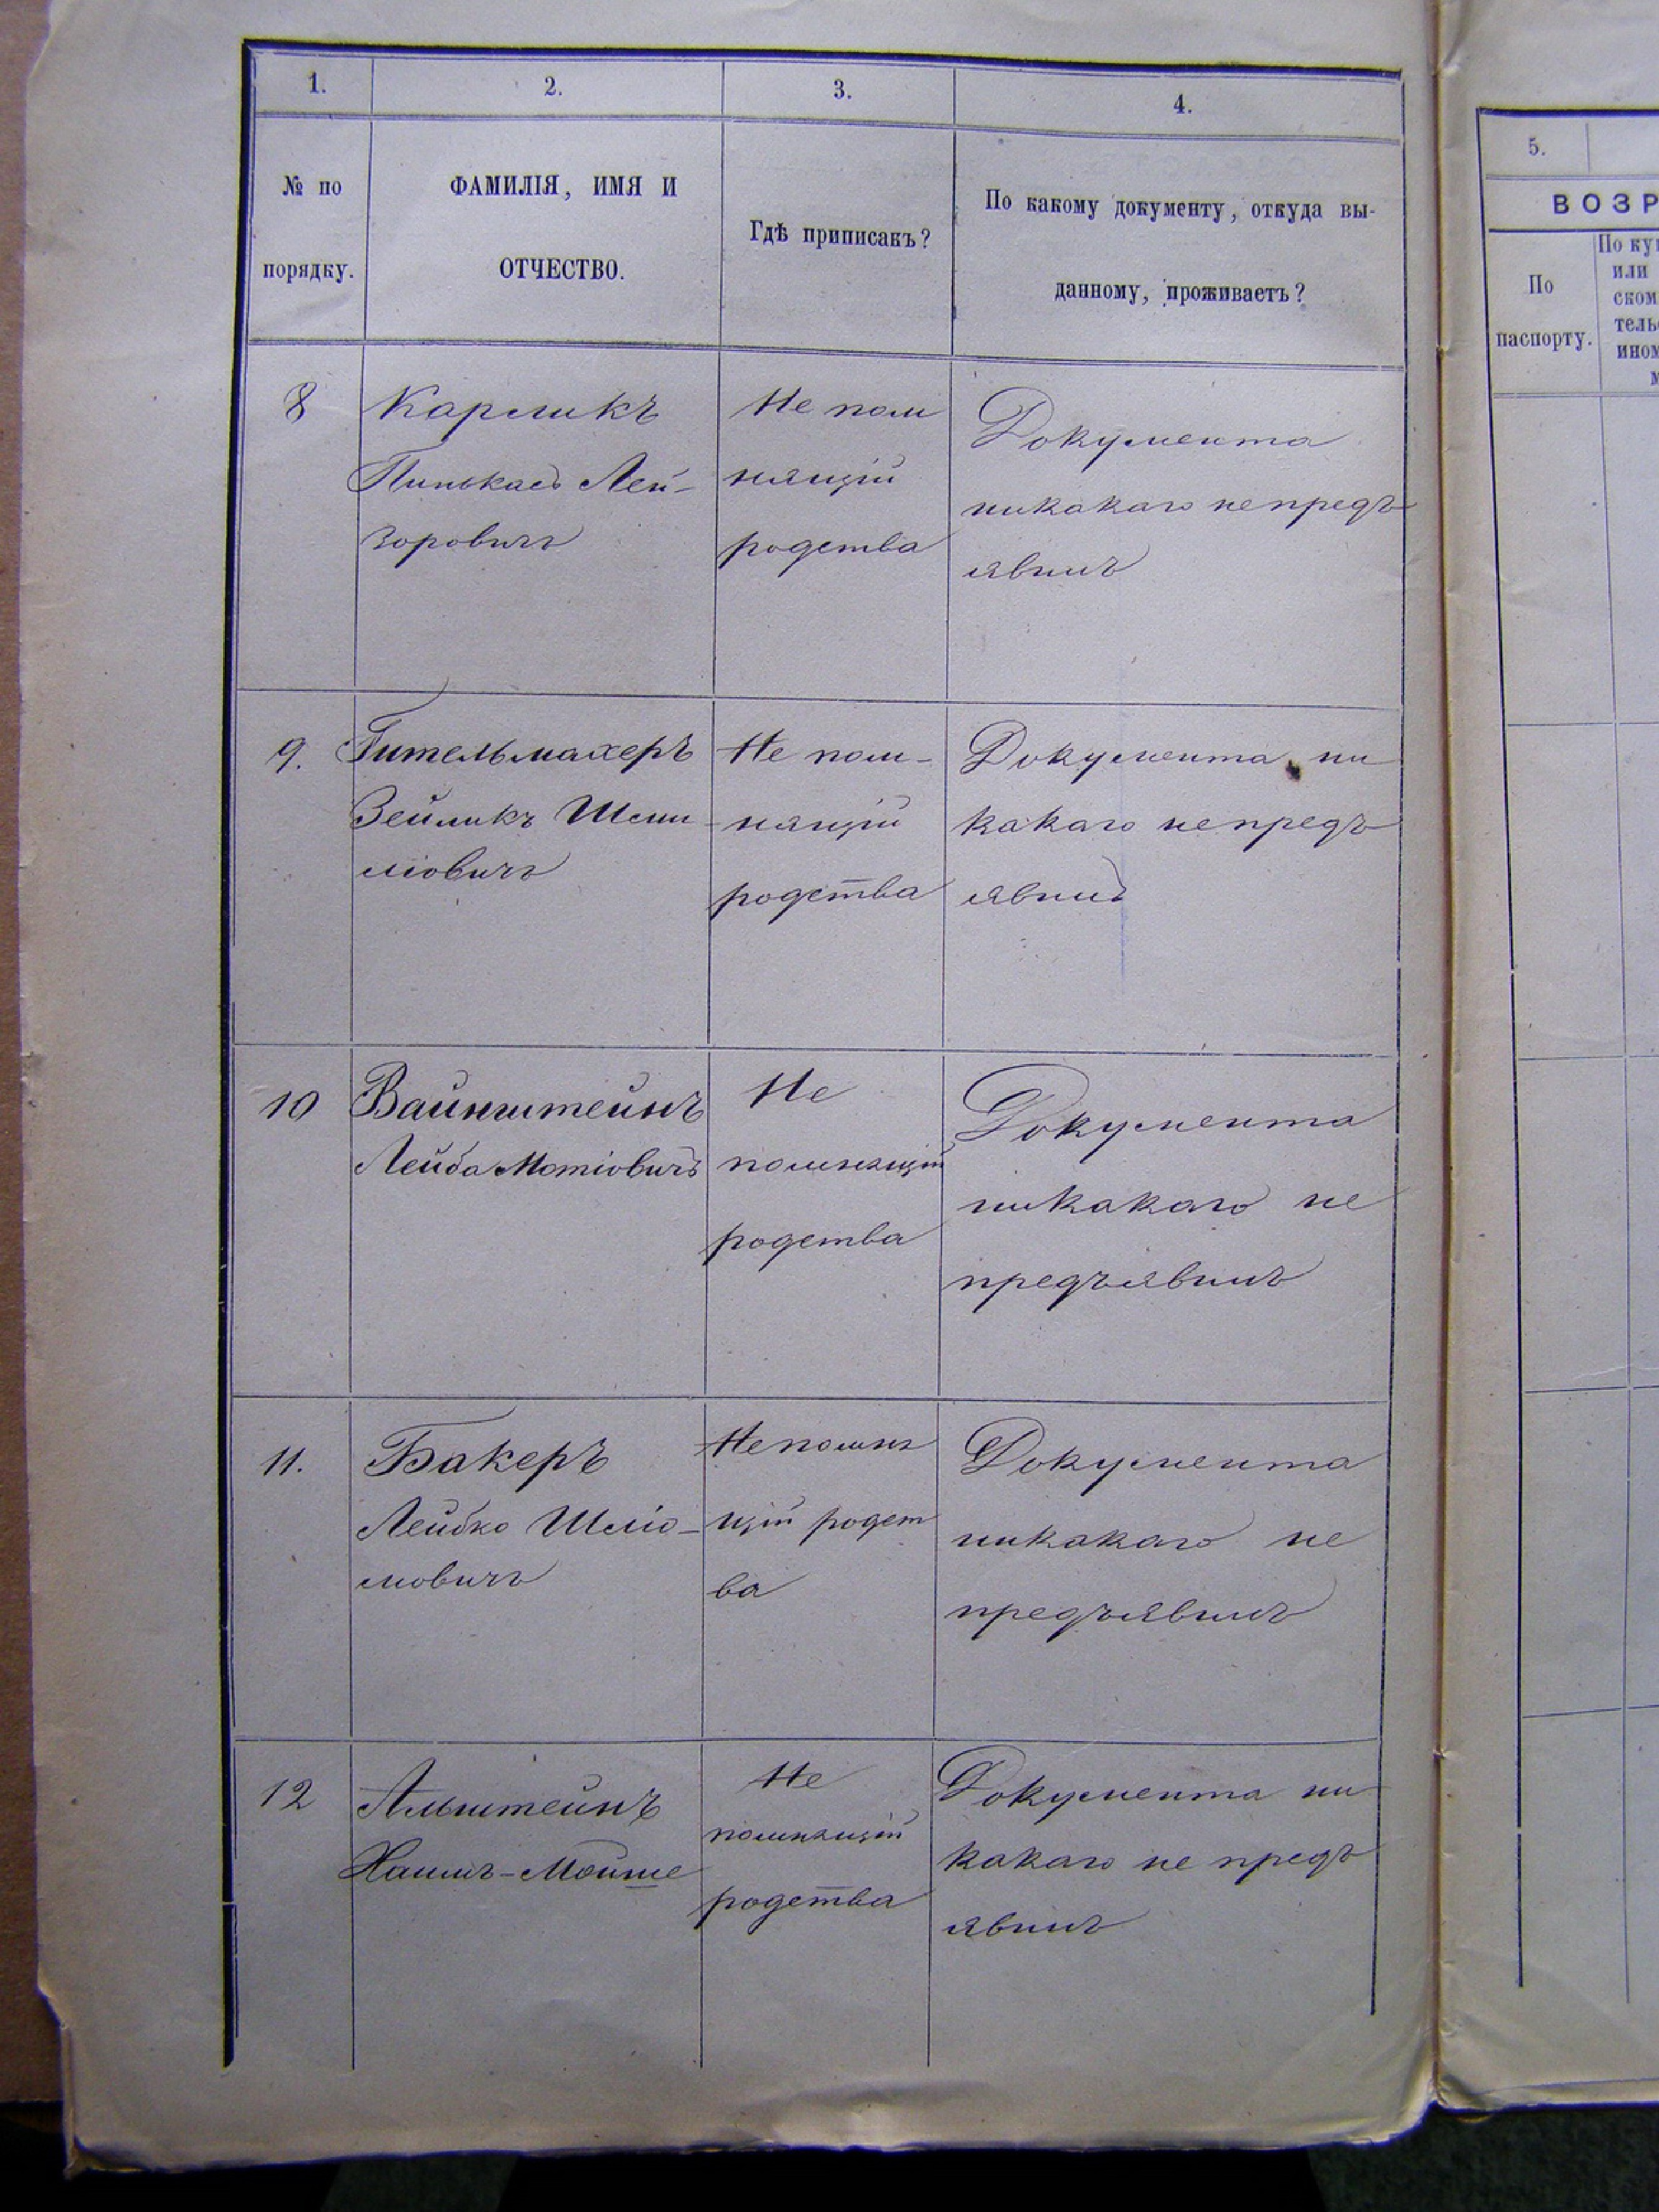 1.
2.
3.
4.
№ по
порядку.
ФАМИЛІЯ, ИМЯ И
ОТЧЕСТВО.
Гдѣ приписанъ?
По какому документу, откуда вы-
данному, проживаетъ?
8
Карликъ
Пинькасъ Лей-
зоровичъ
Не пом
нящій
родства
Документа
никакаго не предъ
явилъ
9.
Гительмахеръ
Зейликъ
Не пом-
нящій
родства
Документа ни
какаго не предъ
явилъ
10
Вайнштейнъ
Лейба Мотіовичъ
Не
помнящій
родства
Документа
никакаго не
предъявилъ
11.
Бакеръ
Лейбко Шліо-
мовичъ
Не помня
щій родст
ва
Документа
никакаго не
предъявилъ
12
Альштейнъ
Хаимъ-Мойше
Не
помнящій
родства
Документа ни
какаго не предъ
явилъ
5.
ВОЗР
По
паспорту.
По ку
или
ском
тель
ином